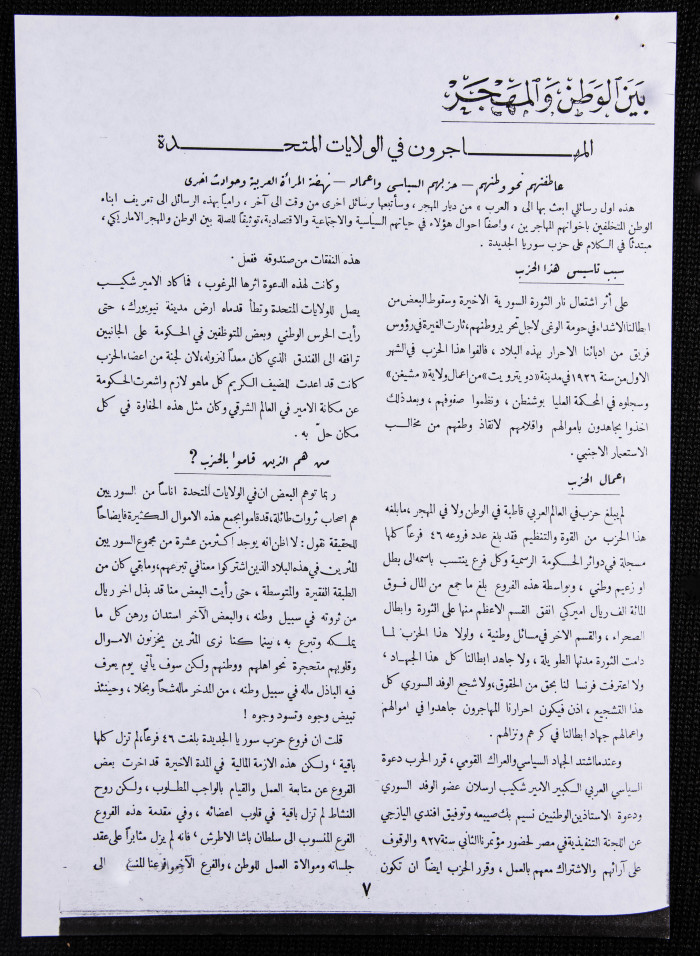 بين الوطن والمهجر
المهاجرون في الولايات المتحدة
عاطفتهم نحو وطنهم — حزبهم السياسي واعماله — نهضة المرأة العربية وحوادث اخرى
هذه اول رسائلي ابعث بها الى « العرب » من ديار المهجر، وسأتبعها برسائل اخرى من وقت الى آخر، رامياً بهذه الرسائل الى تعريف ابناء
الوطن المتخلفين باخوانهم المهاجرين، واصفاً احوال هؤلاء في حياتهم السياسية والاجتماعية والاقتصادية، توثيقاً للصلة بين الوطن والمهجر الاماريكي،
مبتدئاً في الكلام على حزب سوريا الجديدة .
سبب تاسيس هذا الحزب
على أثر اشتعال نار الثورة السورية الاخيرة وسقوط البعض من
ابطالنا الاشداء، في حومة الوغى لاجل تحرير وطنهم، ثارت الغيرة في رؤوس
فريق من ادبائنا الاحرار بهذه البلاد، فالفوا هذا الحزب في الشهر
الاول من سنة ١٩٢٦ في مدينة «دويترويت» من اعمال ولاية «مشيغن»
وسجلوه في المحكمة العليا بوشنطن، ونظموا صفوفهم، وبعد ذلك
اخذوا يجاهدون باموالهم واقلامهم لانقاذ وطنهم من مخالب
الاستعمار الاجنبي .
اعمال الحزب
لم يبلغ حزب في العالم العربي قاطبة في الوطن ولا في المهجر، مابلغه
هذا الحزب من القوة والتنظيم فقد بلغ عدد فروعه ٤٦ فرعاً كلها
مسجلة في دوائر الحكومة الرسمية وكل فرع ينتسب باسمه الى بطل
او زعيم وطني، وبواسطة هذه الفروع بلغ ما جمع من المال فوق
المائة الف ريال اميركي انفق القسم الاعظم منها على الثورة وابطال
الصحراء، والقسم الاخر في مسائل وطنية، ولولا هذا الحزب لما
دامت الثورة مدتها الطويلة، ولا جاهد ابطالنا كل هذا الجهاد،
ولا اعترفت فرنسا لنا بحق من الحقوق، ولا شجع الوفد السوري كل
هذا التشجيع، اذن فيكون احرارنا المهاجرون جاهدوا في اموالهم
واعمالهم جهاد ابطالنا في كرهم ونزالهم .
وعندما اشتد الجهاد السياسي والعراك القومي، قرر الحزب دعوة
السياسي العربي الكبير الامير شكيب ارسلان عضو الوفد السوري
ودعوة الاستاذين الوطنيين نسيم بك صيبعه وتوفيق افندي اليازجي
عن اللجنة التنفيذية في مصر لحضور مؤتمرنا الثاني سنة ٩٢٧ والوقوف
على آرائهم والاشتراك معهم بالعمل، وقرر الحزب ايضاً ان تكون
هذه النفقات من صندوقه ففعل .
وكانت لهذه الدعوة اثرها المرغوب، فما كاد الامير شكيب
يصل للولايات المتحدة وتطأ قدماه ارض مدينة نيويورك، حتى
رأيت الحرس الوطني وبعض المتوظفين في الحكومة على الجانبين
ترافقه الى الفندق الذي كان معداً لنزوله، لان لجنة من اعضاء الحزب
كانت قد اعدت للضيف الكريم كل ماهو لازم واشعرت الحكومة
عن مكانة الامير في العالم الشرقي وكان مثل هذه الحفاوة في كل
مكان حلّ به .
من هم الذين قاموا بالحزب ؟
ربما توهم البعض ان في الولايات المتحدة اناساً من السوريين
هم اصحاب ثروات طائلة، قد قاموا بجمع هذه الاموال الكثيرة فايضاحاً
للحقيقة نقول : لا اظن انه يوجد اكثر من عشرة من مجموع السوريين
المثرين في هذه البلاد الذين اشتركوا معنا في تبرعهم، وما بقي كان من
الطبقة الفقيرة والمتوسطة، حتى رأيت البعض منا قد بذل اخر ريال
من ثروته في سبيل وطنه، والبعض الآخر استدان ورهن كل ما
يملكه وتبرع به، بينما كنا نرى المثرين يخزنون الاموال
وقلوبهم متحجرة نحو اهلهم ووطنهم ولكن سوف يأتي يوم يعرف
فيه الباذل ماله في سبيل وطنه، من المدخر ماله شحاً وبخلا، وحينئذ
تبيض وجوه وتسود وجوه !
قلت ان فروع حزب سوريا الجديدة بلغت ٤٦ فرعاً، لم تزل كلها
باقية، ولكن هذه الازمة المالية في المدة الاخيرة قد اخرت بعض
الفروع عن متابعة العمل والقيام بالواجب المطلوب، ولكن روح
النشاط لم تزل باقية في قلوب اعضائه، وفي مقدمة هذه الفروع
الفرع المنسوب الى سلطان باشا الاطرش، فانه لم يزل مثابراً على عقد
جلساته وموالاة العمل للوطن، والفرع الآخر فرعنا الى
٧